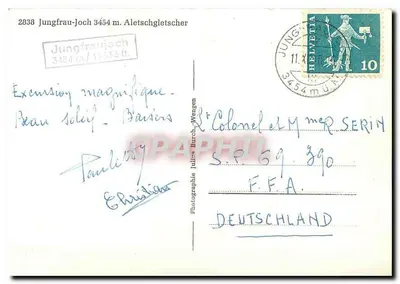 2838 Jungfrau-Joch 3454 m. Aletschgletscher
Jungfraujoch
3454 m / 11333 ft.
HELVETIA
10
JUNG
11.X
3454 m ü.M.
Excursion magnifique.
Beau soleil. Baisers
Christian
Photographie Julius Burch, Wengen
CPAPHIL
Lt Colonel et Mme R. SERIN
S.P. 69.390
F.F.A.
DEUTSCHLAND